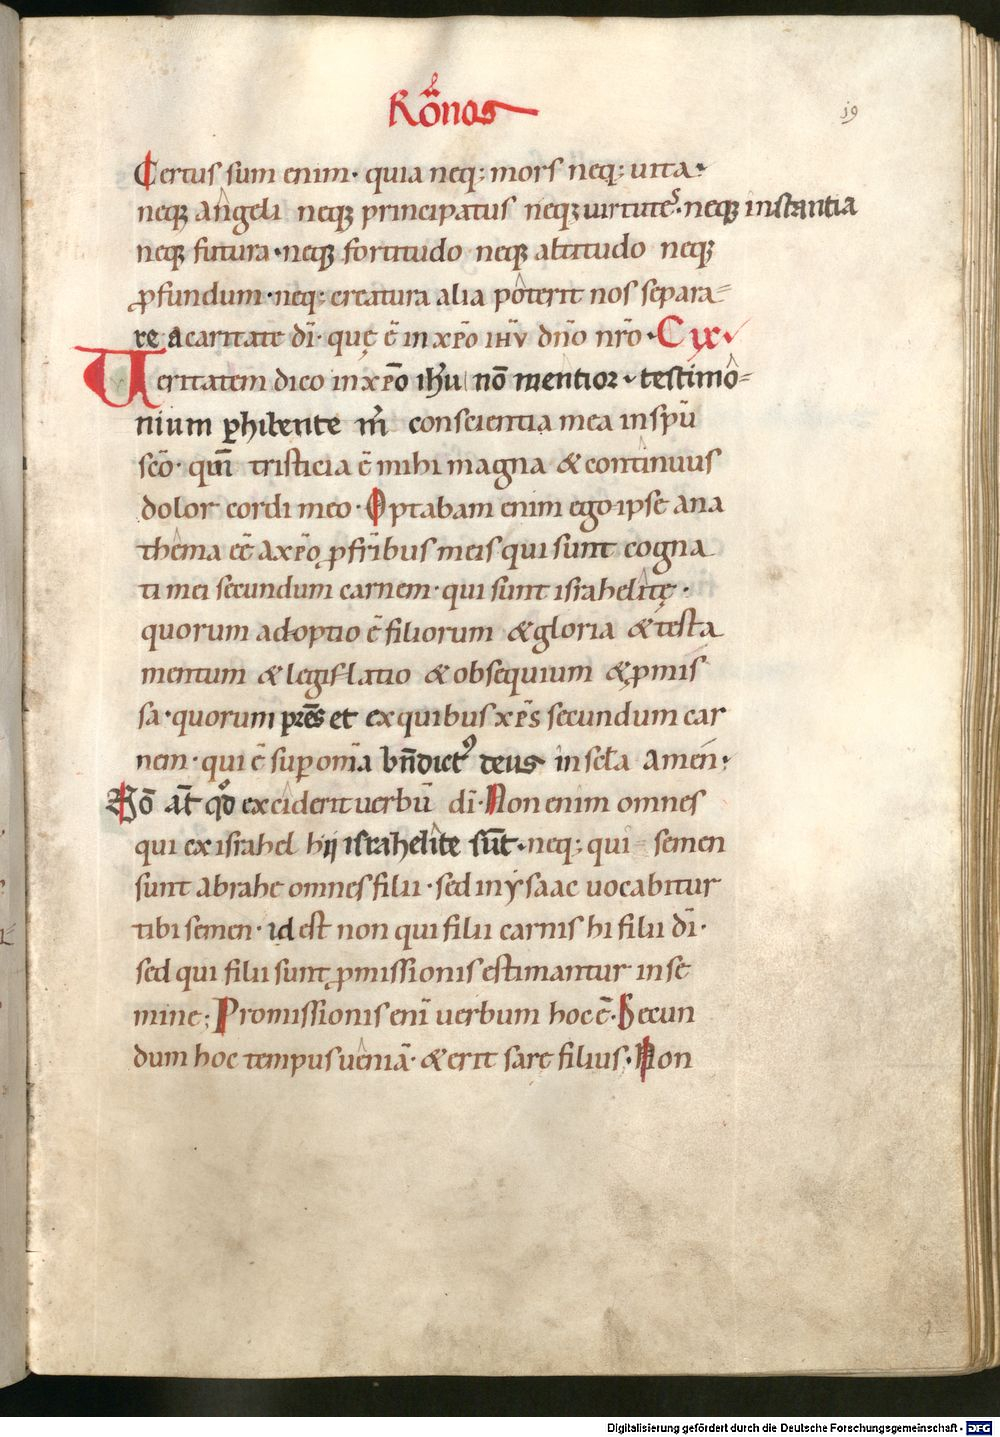 Ro̅nos
19
Certus sum enim · quia neq; mors neq; uita ·
neq; angeli neq; principatus neq; uirtutes · neq; instantia
neq; futura · neq; fortitudo neq; altitudo neq;
ꝓfundum · neq; creatura alia poterit nos separa=
re a caritate di̅ · quę e̅ in xp̅o ih̅u dn̅o nr̅o · C ix
Ueritatem dico in xp̅o ih̅u no̅ mentior · testimo=
nium ꝑhibente m̅ conscientia mea in sp̅u
sc̅o · qm̅ tristicia e̅ mihi magna & continuus
dolor cordi meo · Optabam enim ego ipse ana
thema ee̅ a xp̅o ꝓ fr̅ibus meis qui sunt cogna
ti mei secundum carnem · qui sunt israhelitę ·
quorum adoptio e̅ filiorum & gloria & testa
mentum & legislatio & obsequium & ꝓmis
sa · quorum pr̅es et ex quibus xp̅s secundum car
nem · qui e̅ suꝑ om̅ia bn̅dictꝰ deus in scl̅a amen ·
No̅ at̅ qd̅ exciderit uerbu̅ di̅ · Non enim omnes
qui ex israhel hij israhelite su̅t · neq; qui semen
sunt abrahe omnes filii · sed in ysaac uocabitur
tibi semen · id est non qui filii carnis hi filii di̅ ·
sed qui filii sunt ꝓmissionis estimantur in se
mine ; Promissionis eni̅ uerbum hoc e̅ · Secun
dum hoc tempus uenia̅ · & erit sarę filius · Non
Digitalisierung gefördert durch die Deutsche Forschungsgemeinschaft - DFG